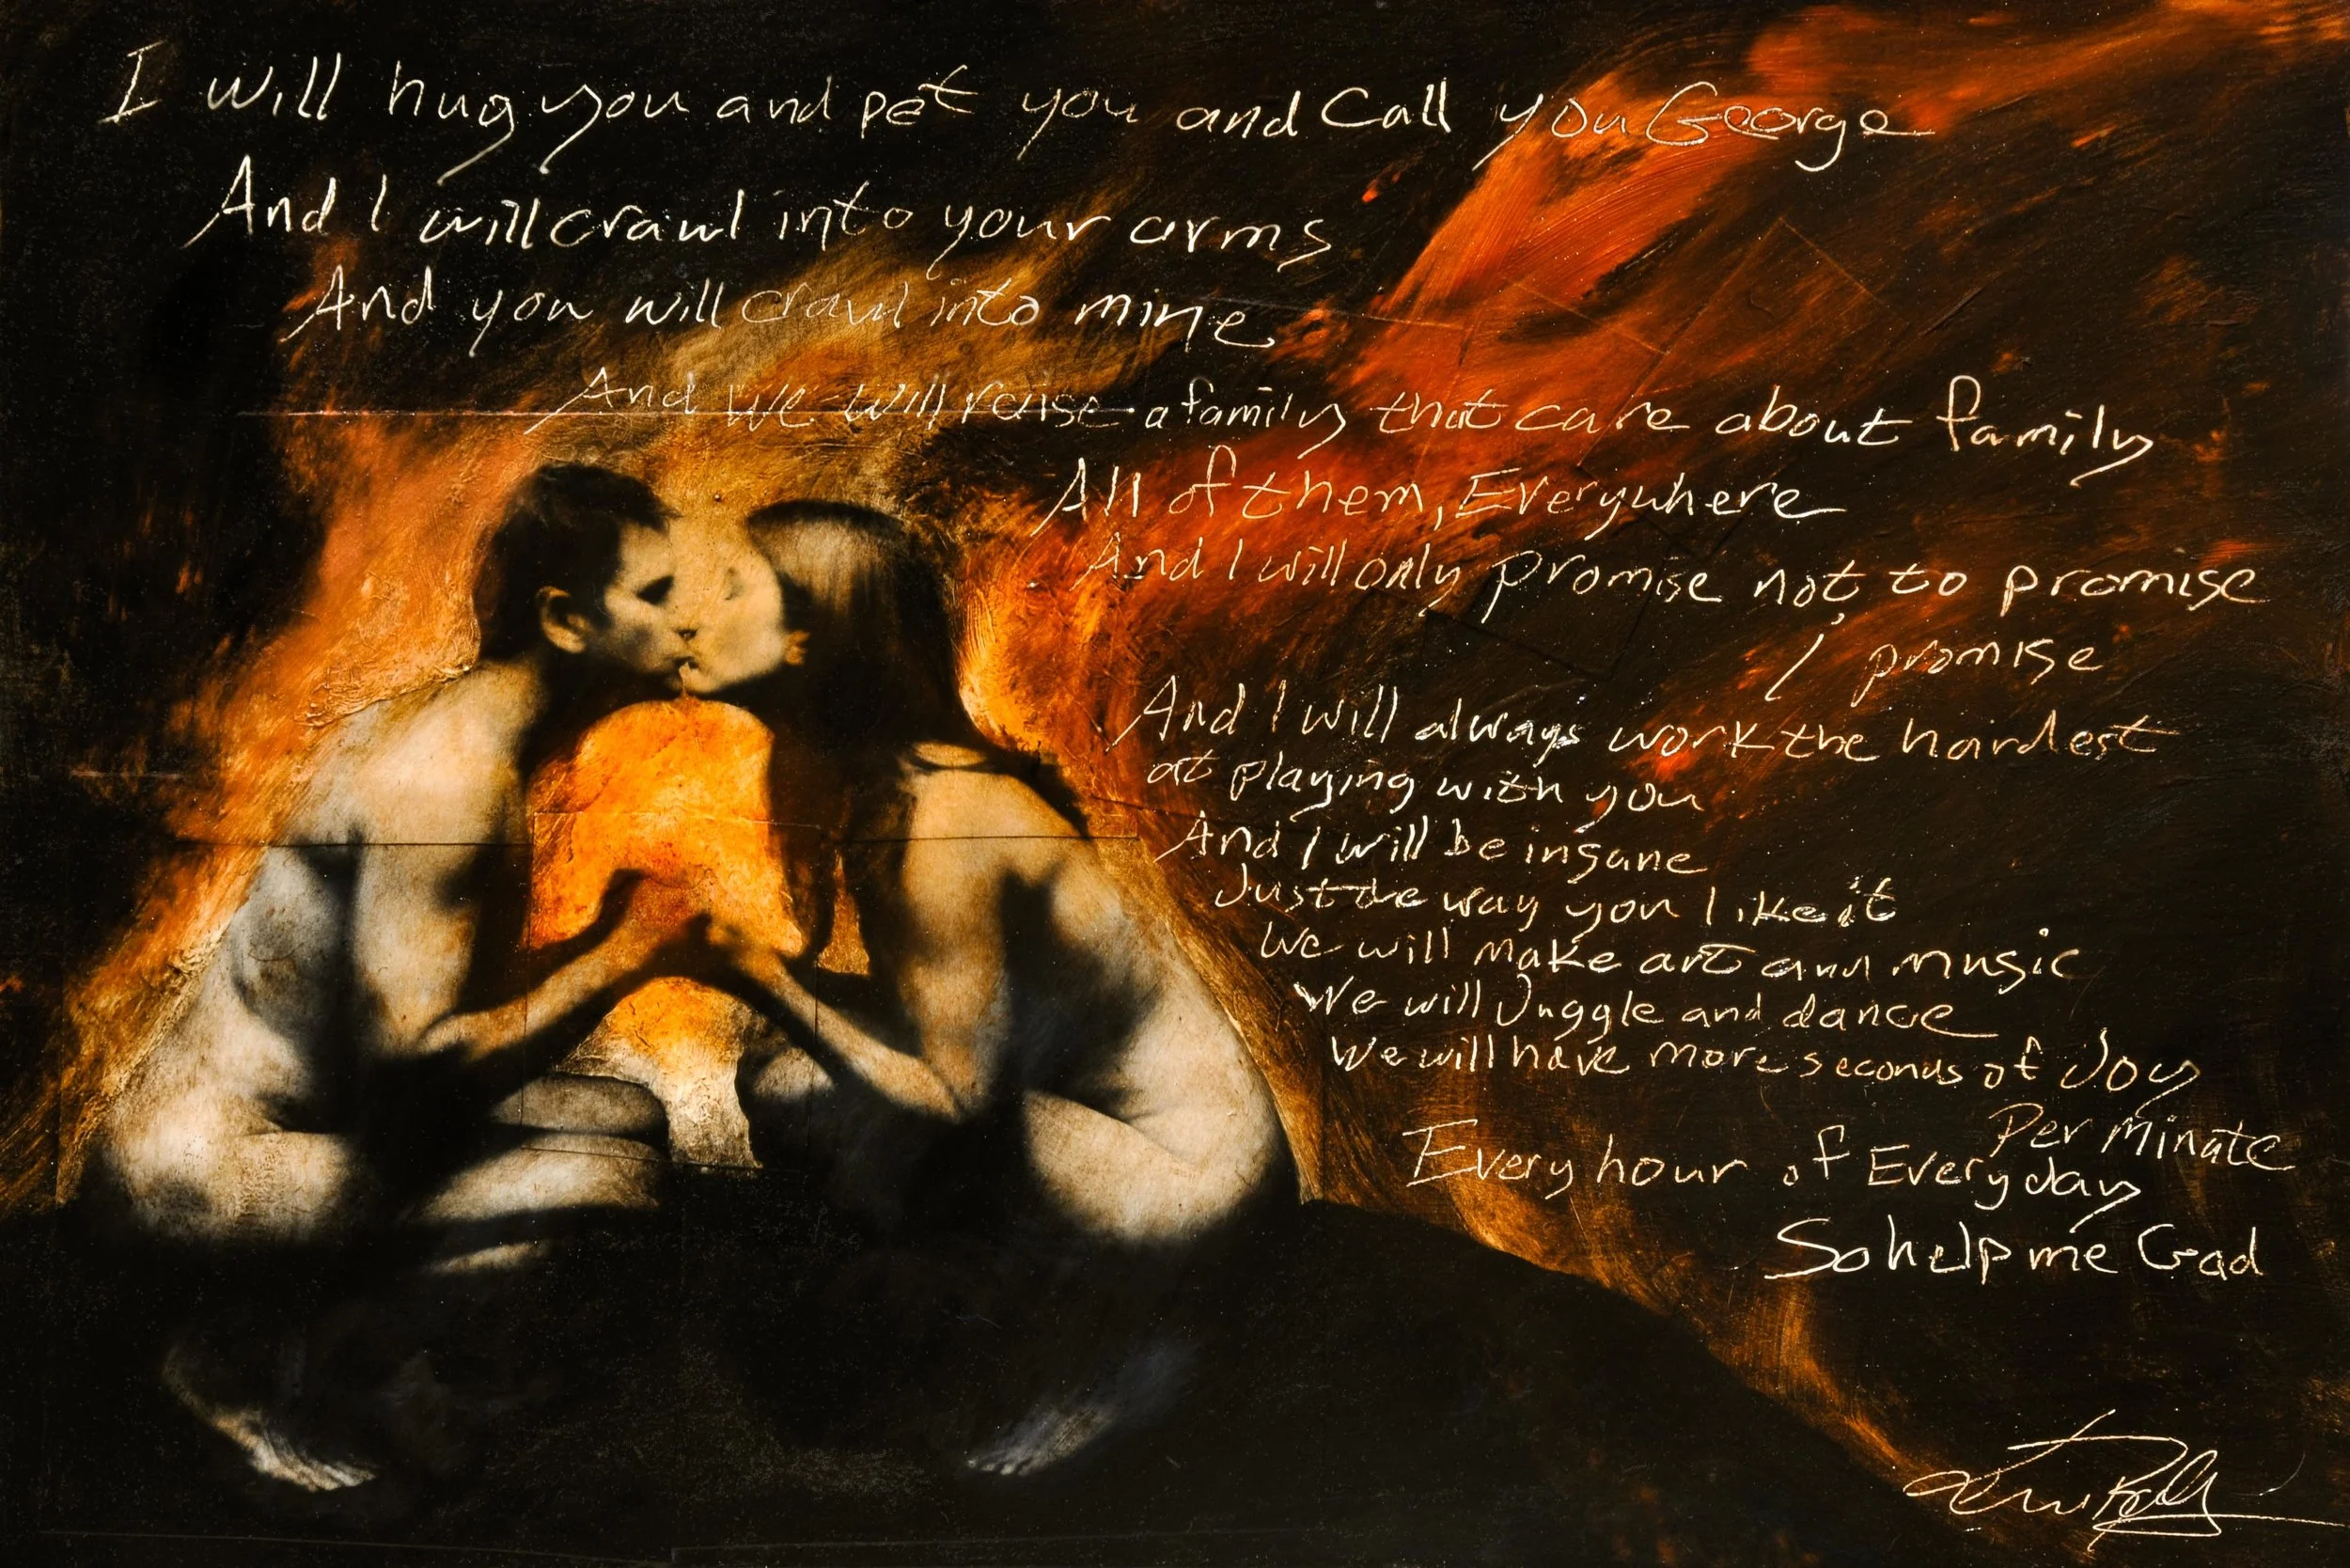 I will hug you and pet you and Call you George
And I will crawl into your arms
And you will crawl into mine
And we will raise a family that care about family
All of them, Everywhere
And I will only promise not to promise
I promise
And I will always work the hardest
at playing with you
And I will be insane
Just the way you like it
We will make art and music
We will Juggle and dance
We will have more seconds of Joy
Per Minute
Every hour of Every day
So help me God